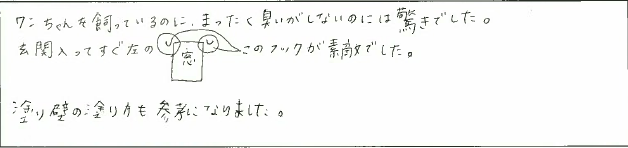 ワンちゃんを飼っているのに、まったく臭いがしないのには驚きでした。
玄関入ってすぐ左の 窓 このフックが素敵でした。
塗り壁の塗り方も参考になりました。